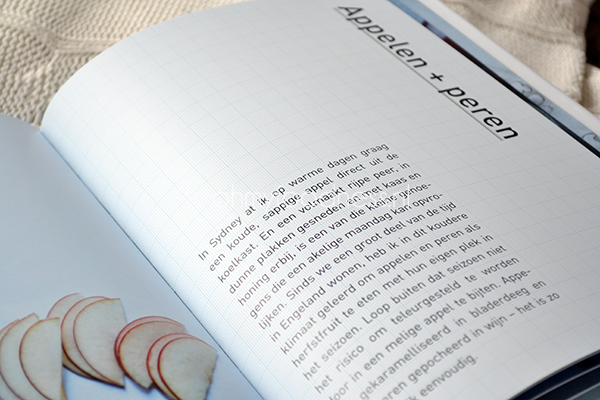 Appelen + peren
In Sydney at ik op warme dagen graag
een koude, sappige appel direct uit de
koelkast. En een volmaakt rijpe peer, in
dunne plakken gesneden en met kaas en
honing erbij, is een van die kleine genoe-
gens die een akelige maandag kan opvro-
lijken. Sinds we een groot deel van de tijd
in Engeland wonen, heb ik in dit koudere
klimaat geleerd om appelen en peren als
herfstfruit te eten met hun eigen plek in
het seizoen. Loop buiten dat seizoen niet
het risico om teleurgesteld te worden
door in een melige appel te bijten. Appe-
gekaramelliseerd in bladerdeeg en
eren gepocheerd in wijn – het is zo
k eenvoudig.